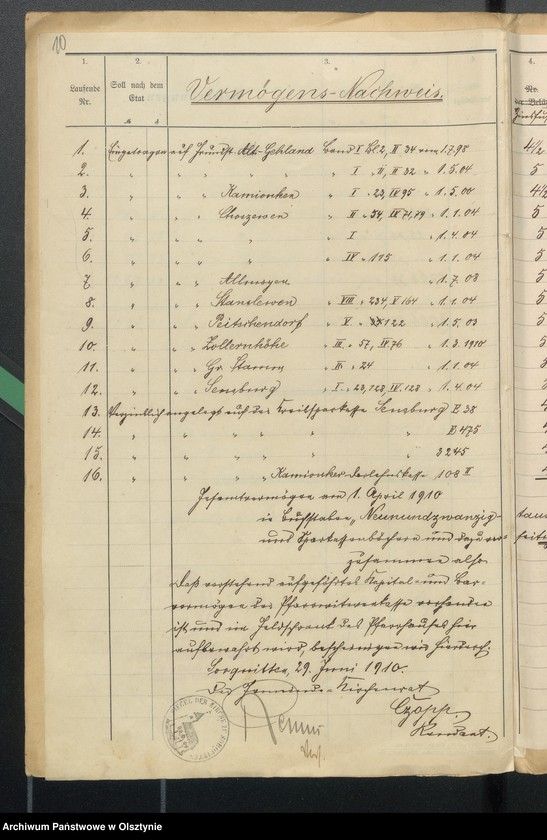 10
1. 2. 3. 4.
Laufende Nr. Soll nach dem Etat Vermögens-Nachweis. Nr.
M. d
1. Eingetragen auf Grundst. Alt-Gehland Band I Bl 2, III 34 vom 1.7.98 4½
2. " " " " " " I " 11, III 32 " 1.5.04 5
3. " " " Kamionken " I " 23, IV 95 " 1.5.00 4½
4. " " " Choszewen " II " 34, IV 74,79 " 1.1.04 5
5. " " " " " I " 1.4.04 5
6. " " " " " IV " 115 " 1.1.04 5
7. " " " Allmoyen " 1.7.08 5
8. " " " Stanslewen " VIII " 234, V 164 " 1.1.04 5
9. " " " Peitschendorf " V " 122 " 1.5.03 5
10. " " " Zollernhöhe " III " 57, IV 76 " 1.3.1910
11. " " " Gr. Stamm " II " 24 " 1.1.04
12. " " " Sensburg " I " 23, 128, IV 128 " 1.4.04
13. Verzinslich angelegt auf der Kreissparkasse Sensburg E 38
14. " " " " " E 475
15. " " " " " 3245
16. " " " Kamionker Darlehnskasse 108 II
Gesamtvermögen am 1. April 1910
in Buchstaben „Neunundzwanzig- tau
und Sparkassenbüchern und dazu
zusammen also
Daß verstehend aufgeführtes Kapital- und Bar-
vermögen der Pfarrwitwenkasse vorhanden
ist und im Geldschrank des Pfarrhauses hier
aufbewahrt wird, bescheinigen wir hierdurch.
Sorquitten, 29. Juni 1910.
Der Gemeinde-Kirchenrat
Czopp.
Rendant.
Archiwum Państwowe w Olsztynie